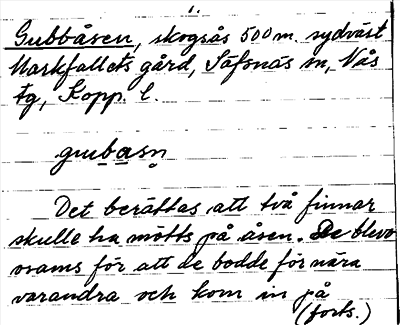 1.
Gubbåsen, skogsås 500 m. sydväst
Markfallets gård, Säfsnäs sn, Nås
fg, Kopp. l.
gub̲b̲a̲sn̥
Det berättas att två finnar
skulle ha mötts på åsen. De blevo
osams för att de bodde för nära
varandra och kom in på
(forts.)